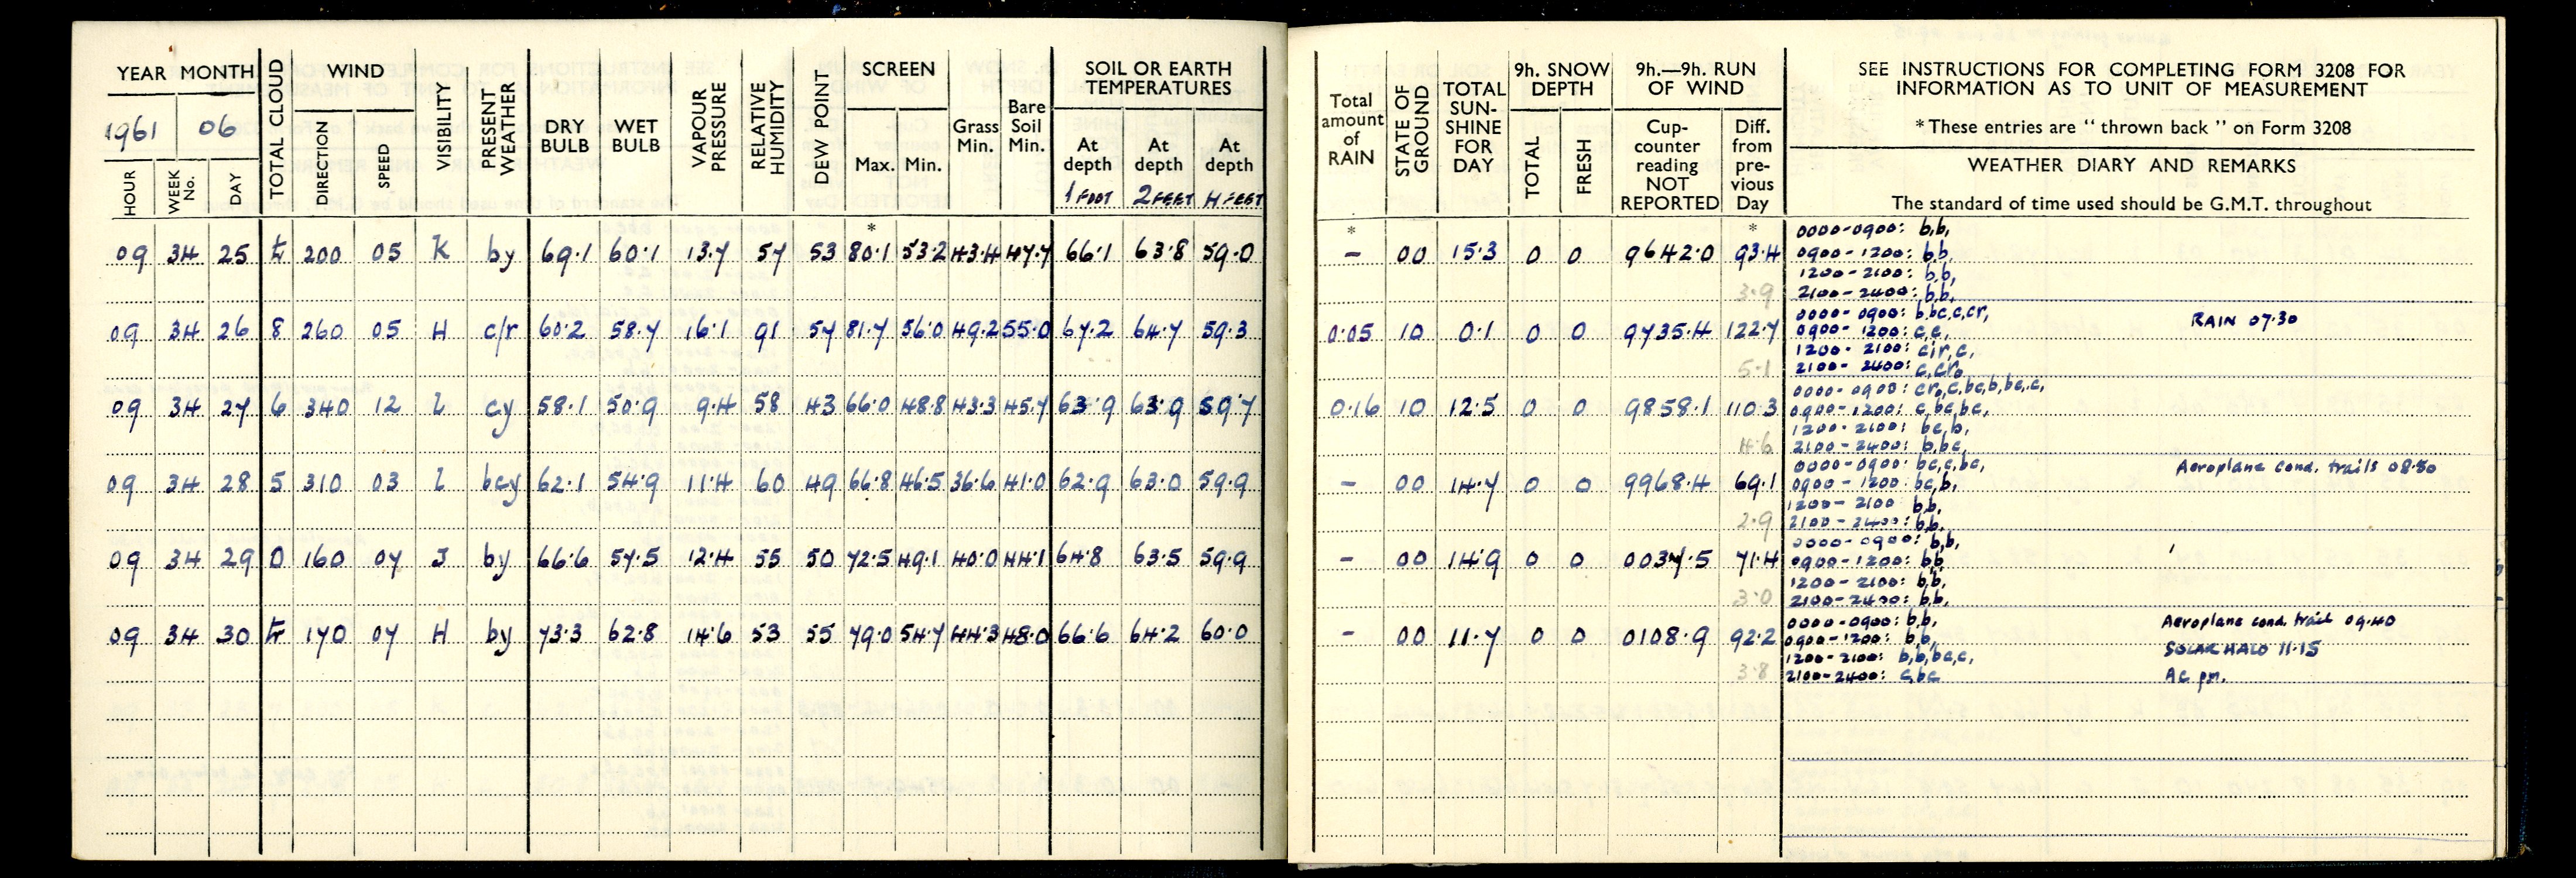 YEAR MONTH
1961 06
HOUR
WEEK No.
DAY
TOTAL CLOUD
WIND
DIRECTION
SPEED
VISIBILITY
PRESENT WEATHER
DRY BULB
WET BULB
VAPOUR PRESSURE
RELATIVE HUMIDITY
DEW POINT
SCREEN
Max. Min.
Grass Min.
Bare Soil Min.
SOIL OR EARTH TEMPERATURES
At depth 1 FOOT
At depth 2 FEET
At depth 4 FEET
*
09 34 25 tr 200 05 K by 69.1 60.1 13.7 57 53 80.1 53.2 43.4 47.7 66.1 63.8 59.0
09 34 26 8 260 05 H c/r 60.2 58.7 16.1 91 57 81.7 56.0 49.2 55.0 67.2 64.7 59.3
09 34 27 6 340 12 L cy 58.1 50.9 9.4 58 43 66.0 48.8 43.3 45.7 63.9 63.9 59.7
09 34 28 5 310 03 L bcy 62.1 54.9 11.4 60 49 66.8 46.5 36.6 41.0 62.9 63.0 59.9
09 34 29 0 160 07 J by 66.6 57.5 12.4 55 50 72.5 49.1 40.0 44.1 64.8 63.5 59.9
09 34 30 tr 170 07 H by 73.3 62.8 14.6 53 55 79.0 54.7 44.3 48.0 66.6 64.2 60.0
Total amount of RAIN
STATE OF GROUND
TOTAL SUN-SHINE FOR DAY
9h. SNOW DEPTH
TOTAL
FRESH
9h.—9h. RUN OF WIND
Cup-counter reading NOT REPORTED
Diff. from pre-vious Day
SEE INSTRUCTIONS FOR COMPLETING FORM 3208 FOR
INFORMATION AS TO UNIT OF MEASUREMENT
* These entries are "thrown back" on Form 3208
WEATHER DIARY AND REMARKS
The standard of time used should be G.M.T. throughout
* *
– 00 15.3 0 0 9642.0 93.4
3.9
0000-0900: b,b,
0900-1200: b,b,
1200-2100: b,b,
2100-2400: b,b,
0.05 10 0.1 0 0 9735.4 122.7
5.1
0000-0900: b,bc,c,cr,
0900-1200: c,c,
1200-2100: cir,c,
2100-2400: c,cr₀
RAIN 07.30
0.16 10 12.5 0 0 9858.1 110.3
4.6
0000-0900: cr₀,c,bc,b,bc,c,
0900-1200: c,bc,bc,
1200-2100: bc,b,
2100-2400: b,bc,
– 00 14.7 0 0 9968.4 69.1
2.9
0000-0900: bc,c,bc,
0900-1200: bc,b,
1200-2100 b,b,
2100-2400: b,b,
Aeroplane cond. trails 08.50
– 00 14.9 0 0 0037.5 71.4
3.0
0000-0900: b,b,
0900-1200: b,b
1200-2100: b,b,
2100-2400: b,b,
– 00 11.7 0 0 0108.9 92.2
3.8
0000-0900: b,b,
0900-1200: b,b,
1200-2100: b,b,bc,c,
2100-2400: c,bc
Aeroplane cond. trail 09.40
SOLAR HALO 11.15
Ac pm.